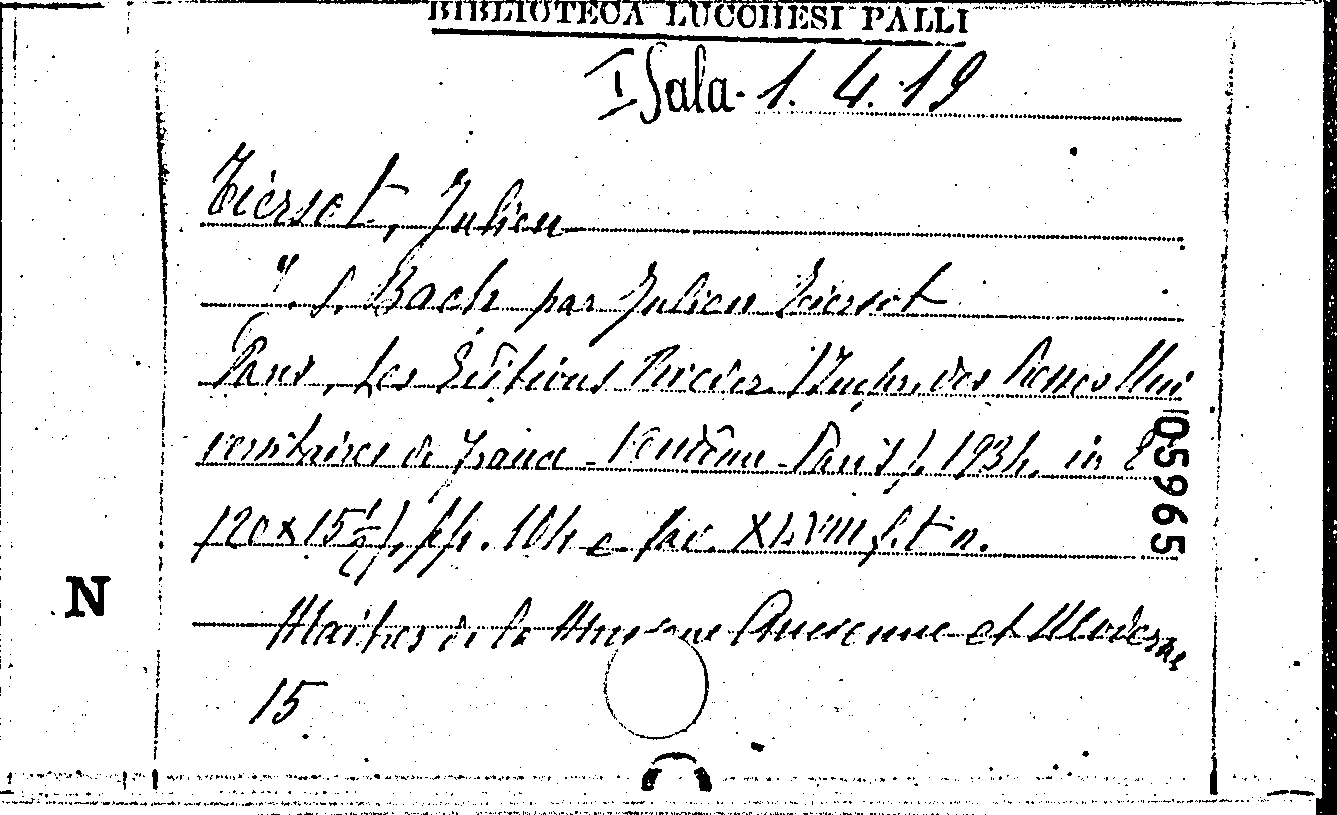 BIBLIOTECA LUCCHESI PALLI
I Sala 1. 4. 19
Tiersot, Julien
J. S. Bach par Julien Tiersot
Paris, Les Éditions Rieder (Impr. des Presses Uni
versitaires de France - Vendôme - Paris), 1934, in 8
(20 x 15 ½), pp. 104 e tav. XLVIII f. t. n.
Maîtres de la Musique Ancienne et Moderne
15
05965
N